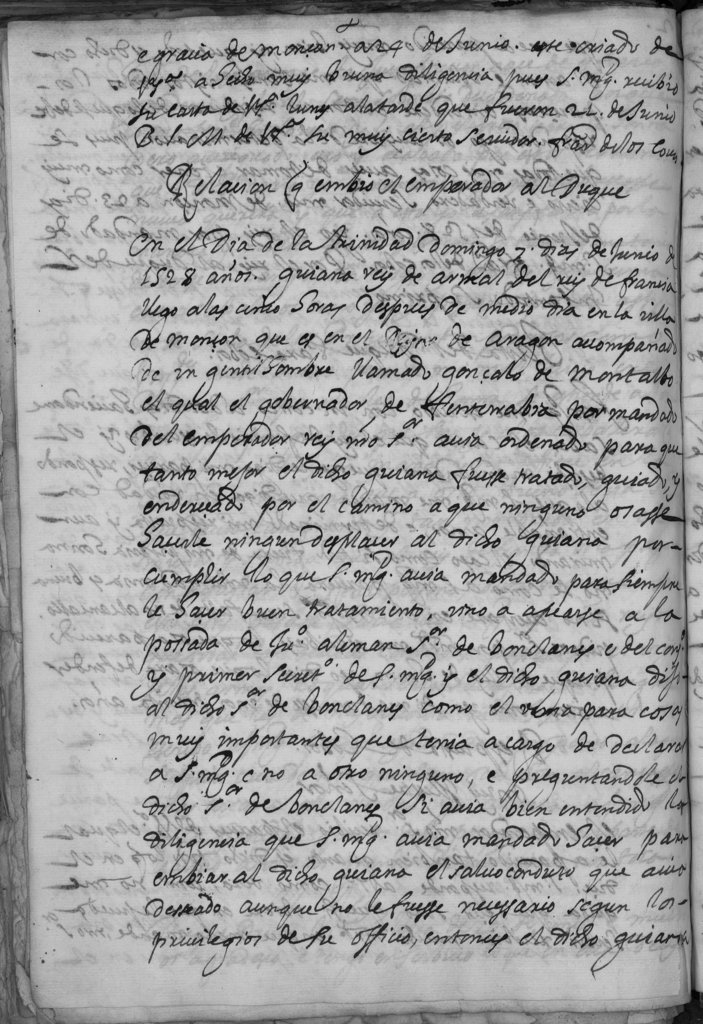 e gracia de monçon a 24 de Junio. este criado de
V. sª a hecho muy buena diligencia pues S. mgᵗ. recibio
su carta de V. sª lunes a la tarde que fueron 22. de Junio
B. l. M. de V. sª su muy cierto servidor. franᶜᵒ de los Cobos.
Relacion q̃ embio el emperador al Duque
En el Dia de la trinidad Domingo 7. dias de Junio de
1528 años. guiana rey de armas del rey de francia
llego a las cinco horas despues de medio dia en la villa
de monçon que es en el Reyno de Aragon acompañado
de un gentilhombre llamado gonçalo de montalbo
el qual el gobernador de fuenterrabia por mandado
del emperador rey nr̃o sʳ. avia ordenado para que
tanto mejor el dicho guiana fuesse tratado, guiado, y
endereçado por el camino a que ninguno osasse
hacerle ningun desplacer al dicho guiana por
cumplir lo que S. mgᵗ. avia mandado para siempre
le hacer buen tratamiento, vino a apearse a la
possada de Juº aleman sʳ. de bonclans e del consº
y primer secretº de S. mgᵗ. y el dicho guiana dijo
al dicho sʳ. de bonclans como el venia para cosas
muy importantes que tenia a cargo de declarar
a S. mgᵗ. e no a otro ninguno, e preguntandole el
dicho sʳ. de bonclans si avia bien entendido la
diligencia que S. mgᵗ. avia mandado hacer para
embiar al dicho guiana el salvoconduto que avia
deseado aunque no le fuesse necessario segun los
privilegios de su officio, entonces el dicho guiana